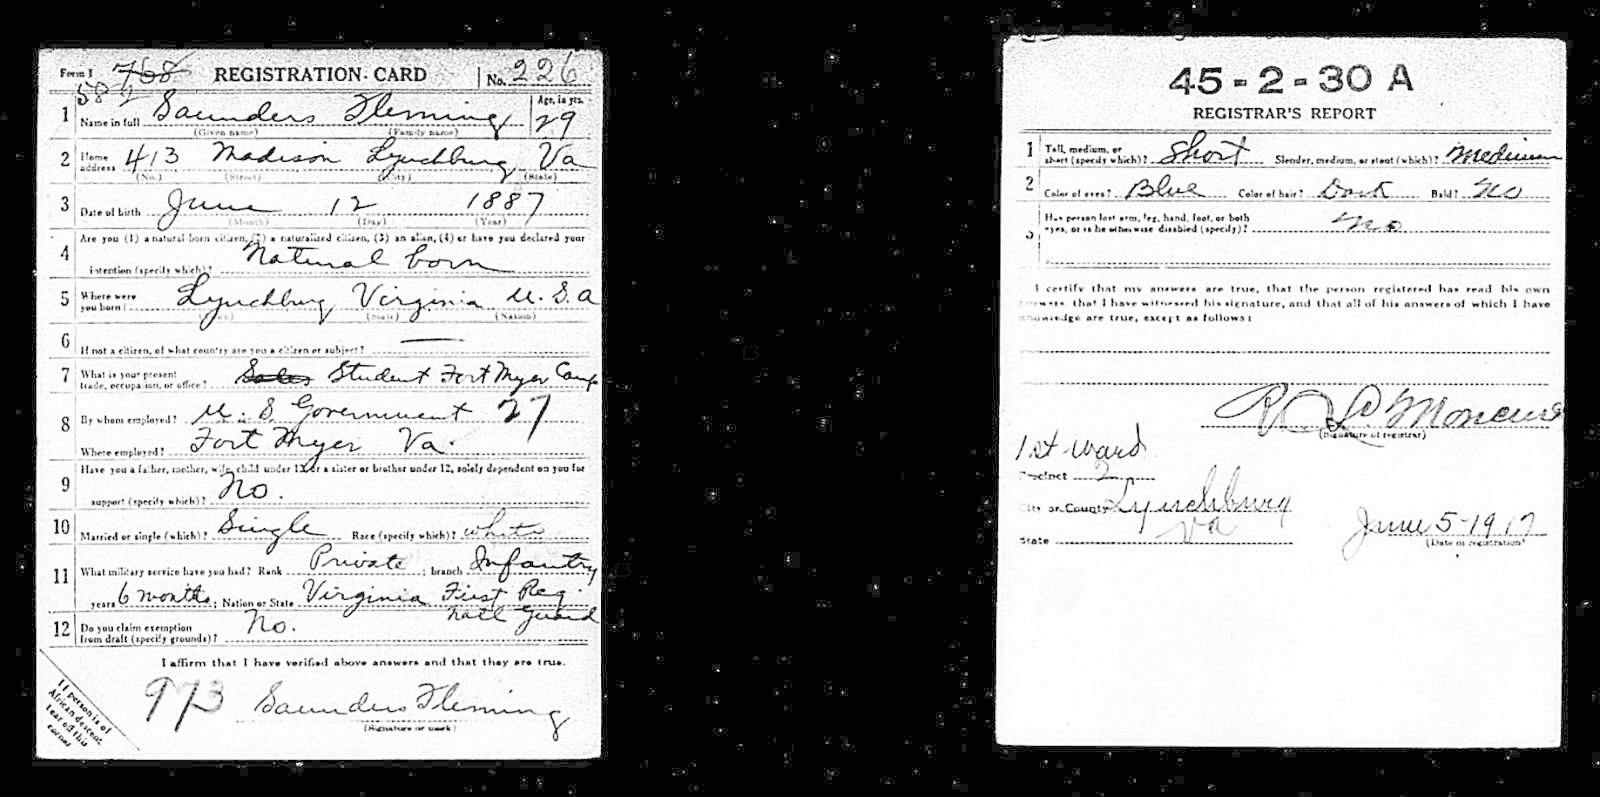 Form 1 768 REGISTRATION CARD No. 226
58
1 Name in full Saunders Fleming Age, in yrs. 29
(Given name) (Family name)
2 Home address 413 Madison Lynchburg Va
(No.) (Street) (City) (State)
3 Date of birth June 12 1887
(Month) (Day) (Year)
4 Are you (1) a natural-born citizen, (2) a naturalized citizen, (3) an alien, (4) or have you declared your
intention (specify which)? Natural born
5 Where were you born? Lynchburg Virginia U.S.A
(Town) (State) (Nation)
6 If not a citizen, of what country are you a citizen or subject? —
7 What is your present trade, occupation, or office? Sales Student Fort Myer Camp
8 By whom employed? U. S Government 27
Where employed? Fort Myer Va.
9 Have you a father, mother, wife, child under 12, or a sister or brother under 12, solely dependent on you for
support (specify which)? No.
10 Married or single (which)? Single Race (specify which)? white
11 What military service have you had? Rank Private ; branch Infantry
years 6 months ; Nation or State Virginia First Reg.
Natl Guard
12 Do you claim exemption from draft (specify grounds)? No.
I affirm that I have verified above answers and that they are true.
973 Saunders Fleming
(Signature or mark)
If person is of
African descent,
tear off this
corner
45-2-30 A
REGISTRAR'S REPORT
1 Tall, medium, or short (specify which)? Short Slender, medium, or stout (which)? Medium
2 Color of eyes? Blue Color of hair? Dark Bald? No
3 Has person lost arm, leg, hand, foot, or both
eyes, or is he otherwise disabled (specify)? No
I certify that my answers are true, that the person registered has read his own
answers, that I have witnessed his signature, and that all of his answers of which I have
knowledge are true, except as follows:
(Signature of registrar)
1st Ward
Precinct 2
City or County Lynchburg
State Va
June 5-1917
(Date of registration)